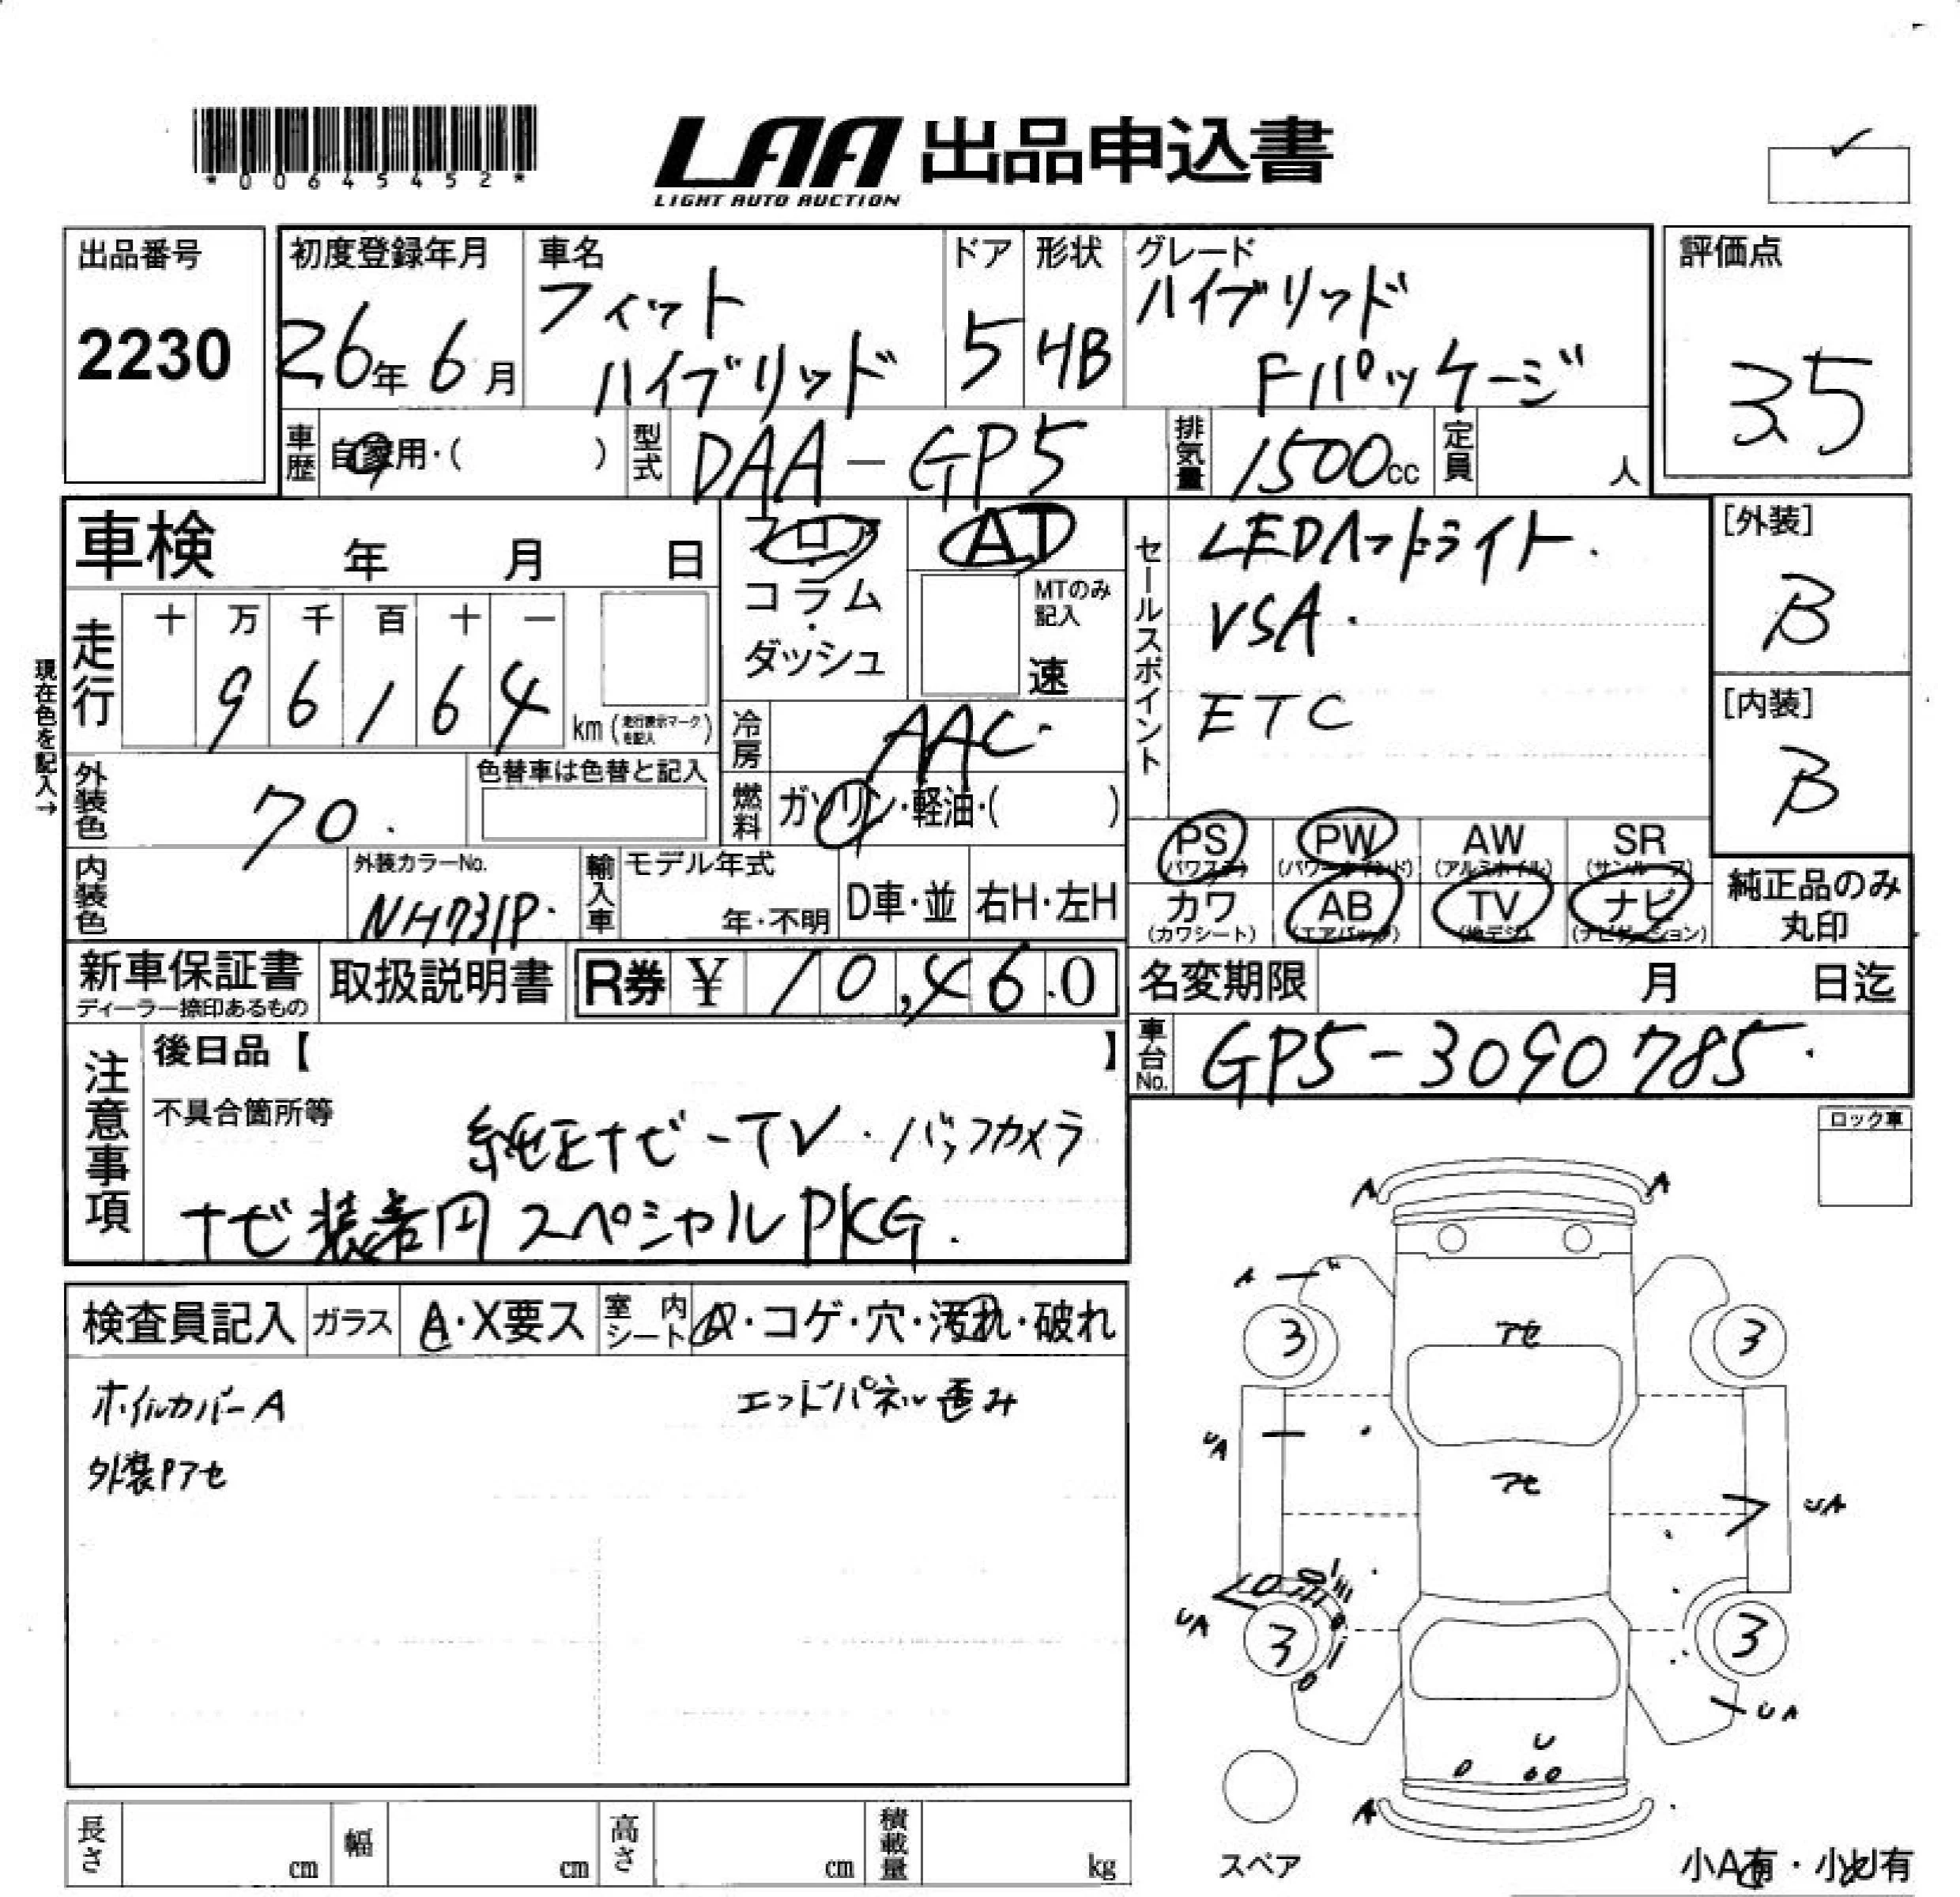 *00645452*
LAA 出品申込書
LIGHT AUTO AUCTION
出品番号
2230
初度登録年月
26年 6月
車名
フィット
ハイブリッド
ドア
5
形状
HB
グレード
ハイブリッド
Fパッケージ
評価点
3.5
車歴
自家用・( )
型式
DAA-GP5
排気量
1500cc
定員
人
車検 年 月 日
フロア
コラム
・
ダッシュ
AT
MTのみ
記入
速
セールスポイント
LEDヘッドライト.
VSA.
ETC
[外装]
B
[内装]
B
現在色を記入→
走行
十 万 千 百 十 一
9 6 1 6 4
km (走行表示マークを記入)
冷房
AAC.
外装色
70.
色替車は色替と記入
燃料
ガソリン・軽油・( )
PS
(パワステ)
PW
(パワーウインド)
AW
(アルミホイル)
SR
(サンルーフ)
内装色
外装カラーNo.
NH731P.
輸入車
モデル年式
年・不明
D車・並
右H・左H
カワ
(カワシート)
AB
(エアバック)
TV
(地デジ)
ナビ
(ナビゲーション)
純正品のみ
丸印
新車保証書
ディーラー捺印あるもの
取扱説明書
R券 ¥ 10,460
名変期限 月 日迄
注意事項
後日品【 】
不具合箇所等
純正ナビ-TV.バックカメラ
ナビ装着用スペシャルPKG.
車台No.
GP5-3090785.
ロック車
検査員記入
ガラス
A・X要ス
室内シート
A・コゲ・穴・汚れ・破れ
ホイルカバーA
エンドパネル歪み
外装Pアセ
A
A
A
3
アセ
3
UA
アセ
UA
UA
3
3
UA
U
A
スペア
小A有・小U有
長さ
cm
幅
cm
高さ
cm
積載量
kg